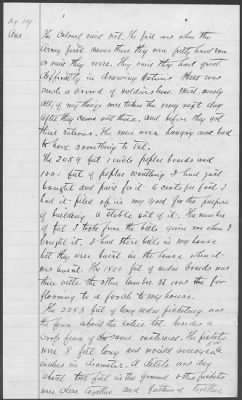 Qt 14
Ans
The Colonel said not. The first was when the
army first came there they were fifty hundred
or said they were. They said they had great
difficulty in drawing rations there was
such a crowd of soldiers here. Most nearly
all, of my things were taken the very next day
after they came out there, and before they got
their rations. The men are hungry and had
to have something to eat.
The 2054 feet 1 inch poplar boards and
1001 feet of poplar scantling I had just
bought and paid for it 2 cents a foot. I
had it piled up in my yard for the purpose
of building a stable out of it. The number
of feet I took from the bills given me when I
bought it, I had those bills in my house
but they were burnt in the house when it
was burnt. The 1800 feet of cedar boards was
there with the other lumber it was the
flooring to a porch to my house.
The 2253 feet of long cedar picketing was
the fence about the entire lot. besides a
cross fence of the same material. The pickets
were 8 feet long and would average
inches in diameter. A ditch was dug
about two feet in the ground & the pickets
were close together and fastened together